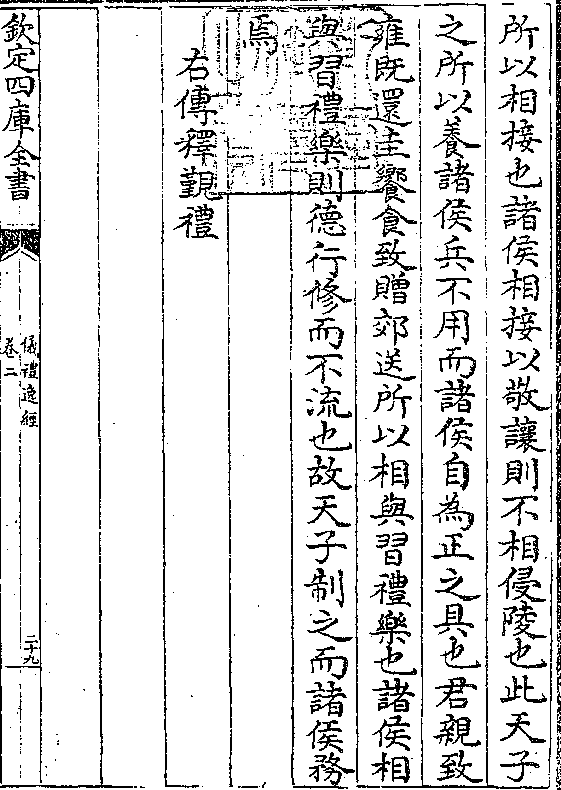 所以相接也諸侯相接以敬讓則不相侵陵也此天子
之所以養諸侯兵不用而諸侯自為正之具也君親致
雍既還圭饗食致贈郊送所以相與習禮樂也諸侯相
與習禮樂則德行修而不流也故天子制之而諸侯務
焉
右傳釋覲禮
欽定四庫全書
儀禮逸經
卷二
二十九